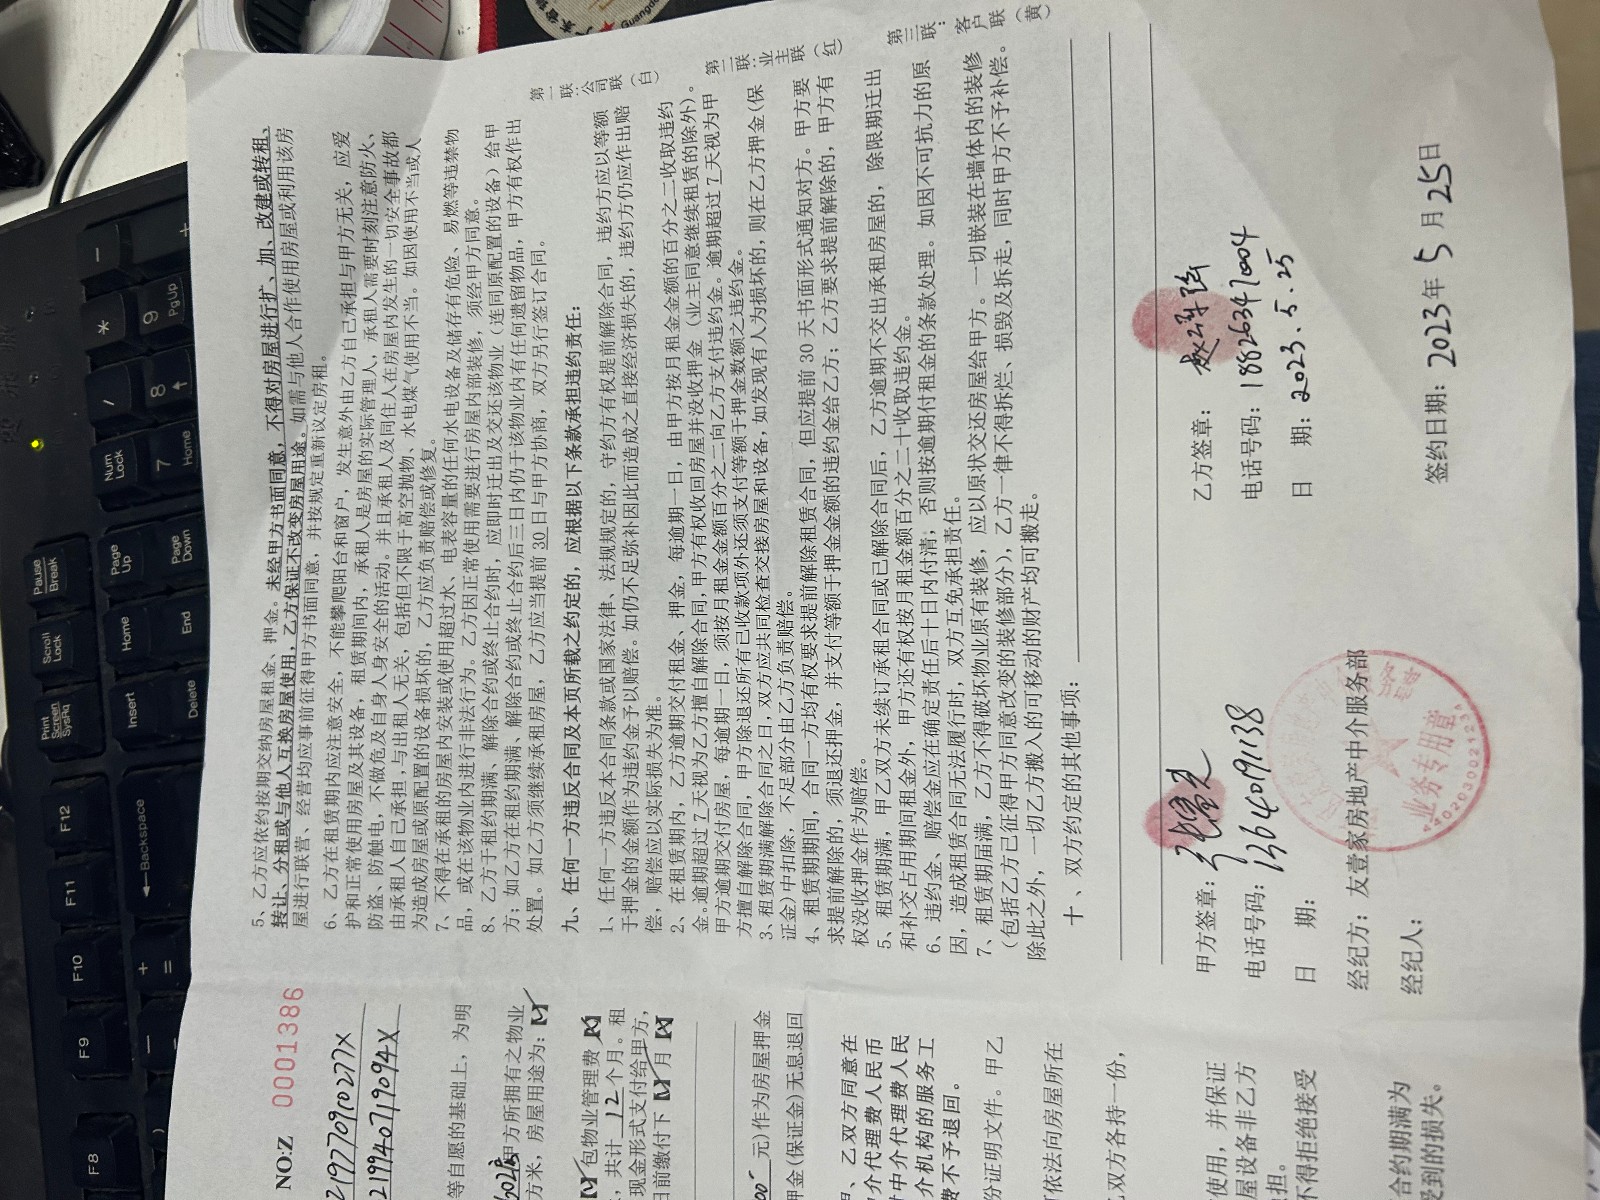 第一联：公司联（白）
第二联：业主联（红）
第三联：客户联（黄）
5、乙方应依约按期交纳房屋租金、押金。未经甲方书面同意，不得对房屋进行扩、加、改建或转租、
转让、分租或与他人互换房屋使用，乙方保证不改变房屋用途。如需与他人合作使用房屋或利用该房
屋进行联营、经营均应事前征得甲方书面同意，并按规定重新议定房租。
6、乙方在租赁期内应注意安全，不能攀爬阳台和窗户，发生意外由乙方自己承担与甲方无关，应爱
护和正常使用房屋及其设备，租赁期间内，承租人是房屋的实际管理人，承租人需要时刻注意防火、
防盗、防触电，不做危及自身人身安全的活动。并且承租人及同住人在房屋内发生的一切安全事故都
由承租人自己承担，与出租人无关，包括但不限于高空抛物、水电煤气使用不当。如因使用不当或人
为造成房屋或原配置的设备损坏的，乙方应负责赔偿或修复。
7、不得在承租的房屋内安装或使用超过水、电表容量的任何水电设备及储存有危险、易燃等违禁物
品，或在该物业内进行非法行为。乙方因正常使用需要进行房屋内部装修，须经甲方同意。
8、乙方于租约期满、解除合约或终止合约时，应即时迁出及交还该物业（连同原配置的设备）给甲
方，如乙方在租约期满、解除合约或终止合约后三日内仍于该物业内有任何遗留物品，甲方有权作出
处置。如乙方须继续承租房屋，乙方应当提前 30 日与甲方协商，双方另行签订合同。
九、任何一方违反合同及本页所载之约定的，应根据以下条款承担违约责任：
1、任何一方违反本合同条款或国家法律、法规规定的，守约方有权提前解除合同，违约方应以等额
于押金的金额作为违约金予以赔偿。如仍不足弥补因此而造成之直接经济损失的，违约方仍应作出赔
偿，赔偿应以实际损失为准。
2、在租赁期内，乙方逾期交付租金、押金，每逾期一日，由甲方按月租金金额的百分之二收取违约
金。逾期超过 7 天视为乙方擅自解除合同，甲方有权收回房屋并没收押金（业主同意继续租赁的除外）。
甲方逾期交付房屋，每逾期一日，须按月租金金额百分之二向乙方支付违约金。逾期超过 7 天视为甲
方擅自解除合同，甲方除退还所有已收款项外还须支付等额于押金数额之违约金。
3、租赁期满解除合同之日，双方应共同检查交接房屋和设备，如发现有人为损坏的，则在乙方押金（保
证金）中扣除，不足部分由乙方负责赔偿。
4、租赁期期间，合同一方均有权要求提前解除租赁合同，但应提前 30 天书面形式通知对方。甲方要
求提前解除的，须退还押金，并支付等额于押金金额的违约金给乙方；乙方要求提前解除的，甲方有
权没收押金作为赔偿。
5、租赁期满，甲乙双方未续订承租合同或已解除合同后，乙方逾期不交出承租房屋的，除限期迁出
和补交占用期间租金外，甲方还有权按月租金额百分之二十收取违约金。
6、违约金、赔偿金应在确定责任后十日内付清；否则按逾期付租金的条款处理。如因不可抗力的原
因，造成租赁合同无法履行时，双方互免承担责任。
7、租赁期届满，乙方不得破坏物业原有装修，应以原状交还房屋给甲方。一切嵌装在墙体内的装修
（包括乙方已征得甲方同意改变的装修部分），乙方一律不得拆烂、损毁及拆走，同时甲方不予补偿。
除此之外，一切乙方搬入的可移动的财产均可搬走。
十、双方约定的其他事项：
甲方签章： 乙方签章：
电话号码：13640191138 电话号码：18826347004
日 期： 日 期：2023.5.25
经纪方：友壹家房地产中介服务部
业务专用章
经纪人： 签约日期：2023年 5 月 25日
NO:Z 0001386
等自愿的基础上，为明
甲方所拥有之物业
方米，房屋用途为：
包物业管理费
，共计 12 个月。租
现金形式支付给甲方，
日前缴付下 月
元）作为房屋押金
押金（保证金）无息退回
、乙双方同意在
介代理费人民币
中介代理费人民
介机构的服务工
费不予退回。
份证明文件。甲乙
依法向房屋所在
双方各持一份，
使用，并保证
屋设备非乙方
担。
不得拒绝接受
合约期满为
受到的损失。
Print Screen SysRq
Scroll Lock
Pause Break
Insert
Home
Page Up
Delete
End
Page Down
Num Lock
/
*
-
7 Home
8
9 PgUp
+
F8
F9
F10
F11
F12
Backspace